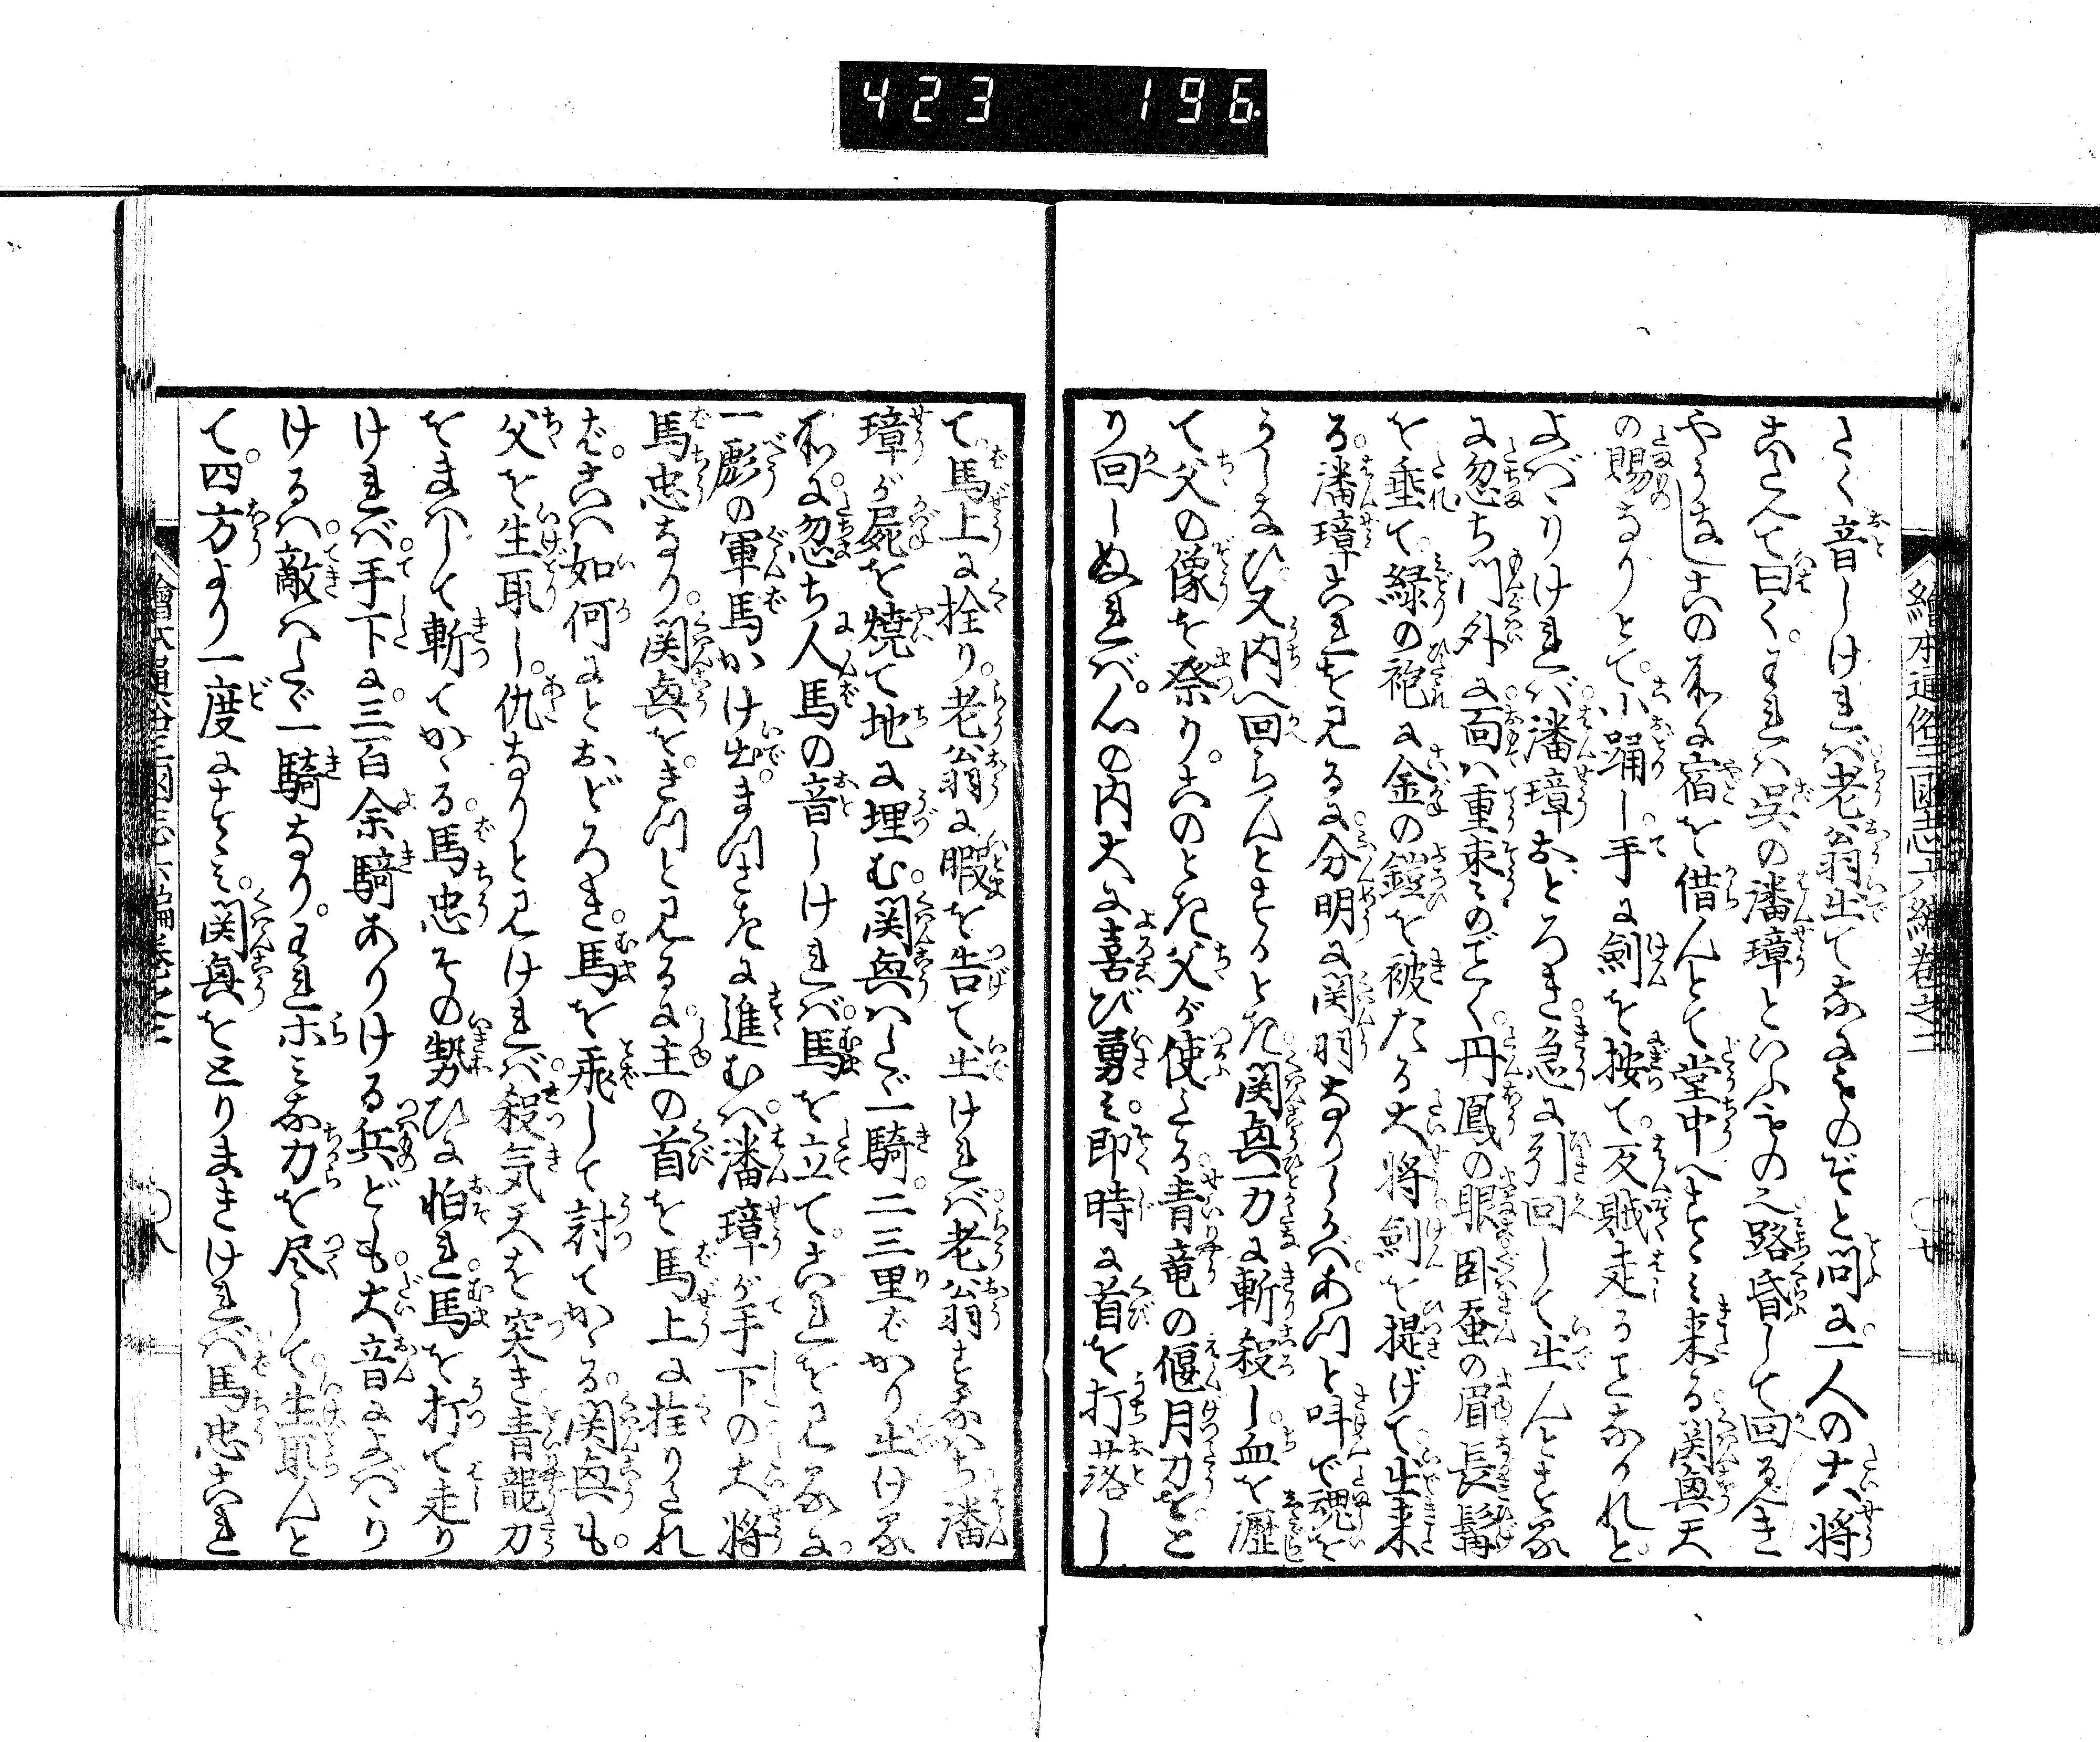 423 196.
繪本通俗三國志六編巻之二
たく音しけれバ老翁出てなにものぞと問に一人の大将
こたへて曰くわれハ呉の潘璋といふもの也路昏して回るべき
やうなしこの所に宿を借んとて堂中へすゝミ来る関興天
の賜なりとて小踊し手に剣を按て反賊走ることなかれと
よバゝりけれバ潘璋おどろき急に引回して出んとする
に忽ち門外に面ハ重棗のごとく丹鳳の眼臥蚕の眉長髯
を垂て緑の袍に金の鎧を被たる大将剣を提げて出来
る潘璋これを見るに分明に関羽なりしかバあつと叫で魂を
うしなひ又内へ回らんとするとき関興一刀に斬殺し血を瀝
て父の像を祭りこのとき父が使たる青竜の偃月刀をと
り回しぬれバ心の内大に喜び勇ミ即時に首を打落し
て馬上に拴り老翁に暇を告て出けれバ老翁すなハち潘
璋が屍を焼て地に埋む関興ハたゞ一騎二三里ばかり出ける
所に忽ち人馬の音しけれバ馬を立てこれを見るに
一彪の軍馬かけ出まつさきに進むハ潘璋が手下の大将
馬忠なり関興をきつと見るに主の首を馬上に拴りたれ
バこハ如何にとおどろき馬を飛して討てかゝる関興も
父を生取し仇なりと見けれバ殺気天を突き青龍刀
をまハして斬てかゝる馬忠その勢ひに怕れ馬を打て走り
けれバ手下に三百余騎ありける兵ども大音によバゝり
けるハ敵ハたゞ一騎なりわれホミな力を尽して生取んと
て四方より一度にすゝミ関興をとりまきけれバ馬忠これ